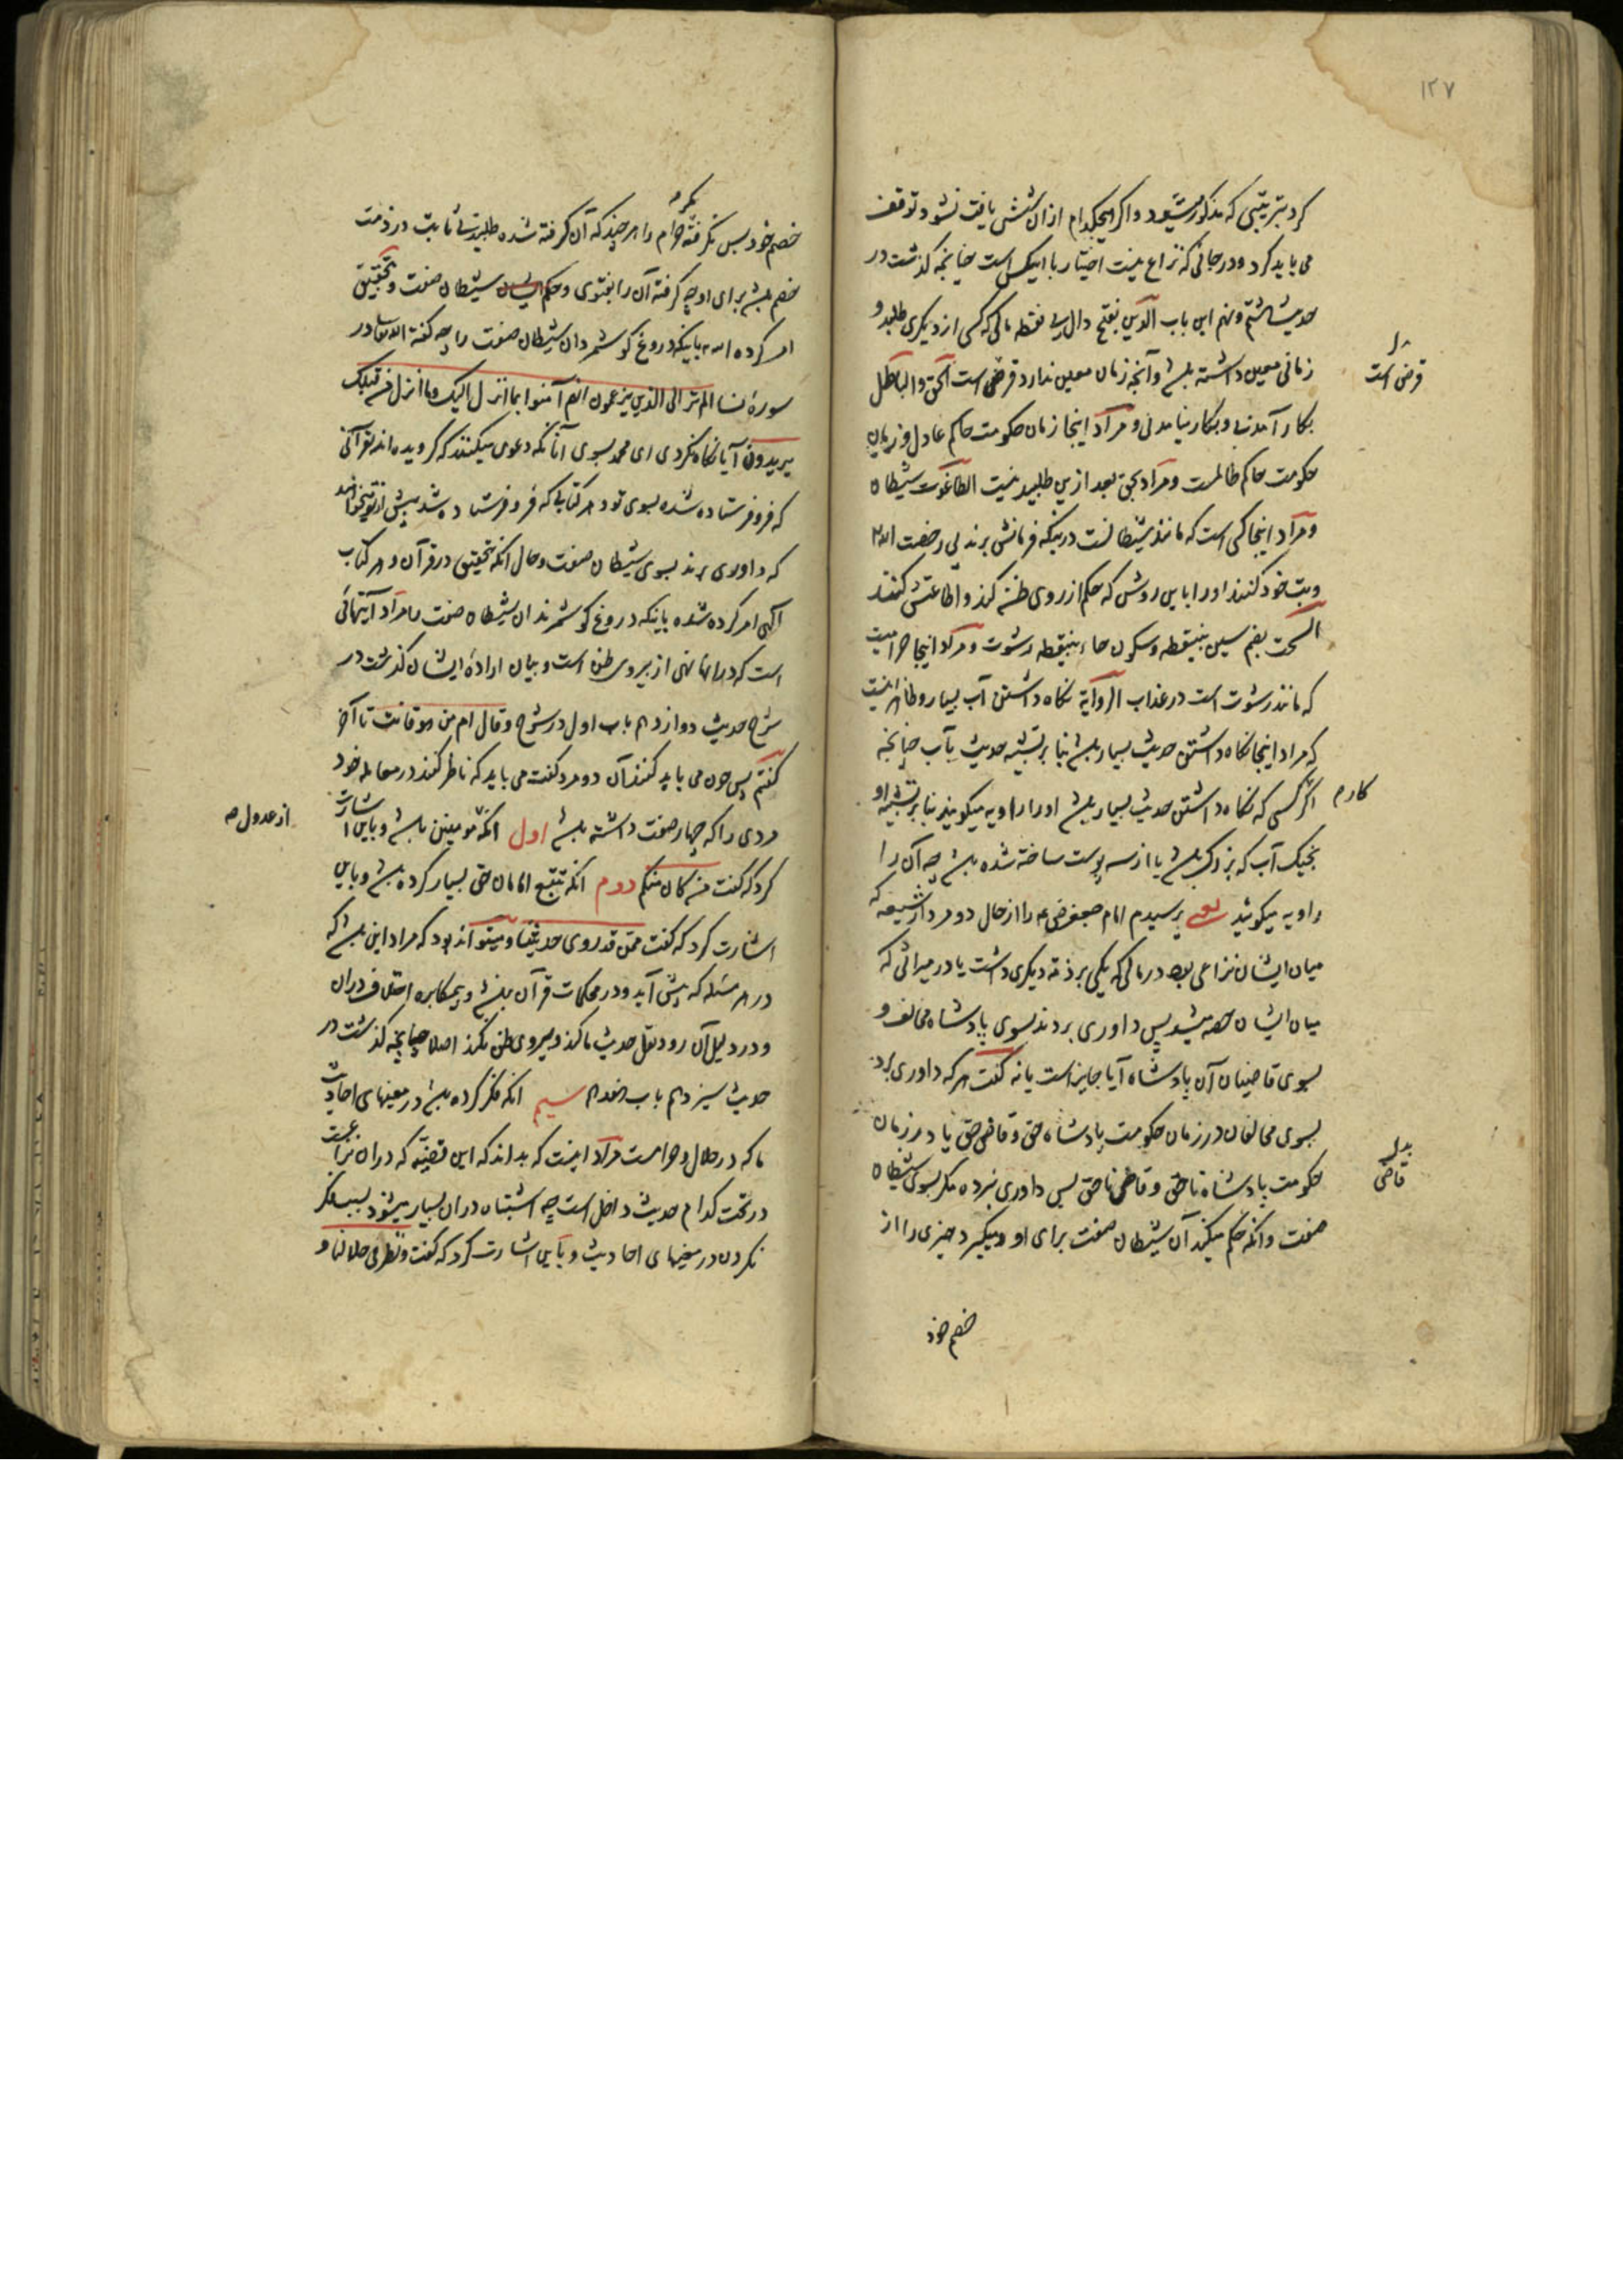 ۱۲۷
کرد بترتیبی که مذکور میشود و اگر هیچکدام ازان شش یافت نشود توقف
می باید کرد و در جائی که نزاع نیست اختیار با اینکس است چنانچه گذشت در
حدیث هشتم و نهم این باب الدین بفتح دال بی نقطه مالی که کسی از دیگری طلبد و
زمانی معین داشته باشد و آنچه زمان معین ندارد قرض است الحق و الباطل
قرض است
بکار آمدنی و بکار نیامدنی و مراد اینجا زمان حکومت حاکم عادل و زمان
حکومت حاکم ظالمست و مراد بحق بعد ازین طلبید نیست الطاغوت شیطان
و مراد اینجا کسی است که مانند شیطانست در اینکه فرمانش برند بی رخصت الله
وبت خود کنند او را باین روش که حکم از روی ظن کند و اطاعتش کنند
السحت بضم سین بینقطه و سکون حاء بینقطه رشوت و مراد اینجا حرامیست
که مانند رشوت است در عذاب الروایة نگاه داشتن آب بسیار و ظاهر اینست
که مراد اینجا نگاه داشتن حدیث بسیار باشد بنا بر تشبیه حدیث بآب چنانچه
اگر کسی که نگاه داشتن حدیث بسیار باشد او را راویه میگویند بنا بر تشبیه او
کارم
بخیک آب که بزرگ باشد یا از سه پوست ساخته شده باشد چه آن را
راویه میگویند یعنی پرسیدم امام جعفر ع را از حال دو مرد از شیعه که
میان ایشان نزاعی بود در مالی که یکی بر ذمه دیگری داشت یا در میراثی که
میان ایشان حصه میشد پس داوری بردند بسوی پادشاه مخالف و
بسوی قاضیان آن پادشاه آیا جایز است یا نه گفت هر که داوری برد
بسوی مخالفان در زمان حکومت پادشاه حق و قاضی حق یا در زمان
حکومت پادشاه ناحق و قاضی ناحق پس داوری نبرده مگر بسوی شیطان
بدل
قاضی
صفت و انکه حکم میکند آن شیطان صفت برای او و میگیرد چیزی را از
خصم خود
خصم خود پس نگرفته مگر حرام را هر چند که آن گرفته شده طلبید ثابت در ذمت
خصم باشد برای او چه گرفته آن را بفتوی و حکم شیطان صفت و بتحقیق
امر کرده الله باینکه دروغ گو شمرد آن شیطان صفت را چه گفته الله تعالی در
سورۀ نسا الم تر الی الذین یزعمون انهم آمنوا بما انزل الیک و ما انزل من قبلک
یریدون آیا نگاه نکردی ای محمد بسوی آنانکه دعوی میکنند که گرویده اند بقرآنی
که فرو فرستاده شده بسوی تو و هر کتابی که فرو فرستاده شد پیش از تو میخواهند
که داوری برند بسوی شیطان صفت و حال انکه بتحقیق در قرآن و هر کتاب
الهی امر کرده شده باینکه دروغ گو شمرند آن شیطان صفت را مراد آیتهائی
است که در آنها نهی از پیروی ظن است و بیان ارادۀ ایشان گذشت در
شرح حدیث دوازدهم باب اول در شرح و قال ام من هو قانت تا آخر
گفتم پس چون می باید کنند آن دو مرد گفت می باید که ناظر کنند در معامله خود
مردی را که چهار صفت داشته باشد اول انکه از مومنین باشد و باین اشارت
از عدول صه
کرد که گفت من کان منکم دوم انکه تتبع امامان حق بسیار کرده باشد و باین
اشارت کرد که گفت ممن قد روی حدیثنا و میتواند بود که مراد این باشد که
در هر مسئله که پیش آید و در محکمات قرآن نباشد و بیمکابره اختلاف در آن
و در دلیل آن رود نقل حدیث ما کند و پیروی ظن نکند اصلا چنانچه گذشت در
حدیث سیزدهم باب هفدهم سیم انکه فکر کرده باشد در معنیهای احادیث
ما که در حلال و حرامست مراد اینست که بداند که این قضیه که در آن نزاعست
در تحت کدام حدیث داخل است چه اشتباه در آن بسیار میشود بسبب فکر
نکردن در معنیهای احادیث و باین اشارت کرد که گفت و نظر فی حلالنا و